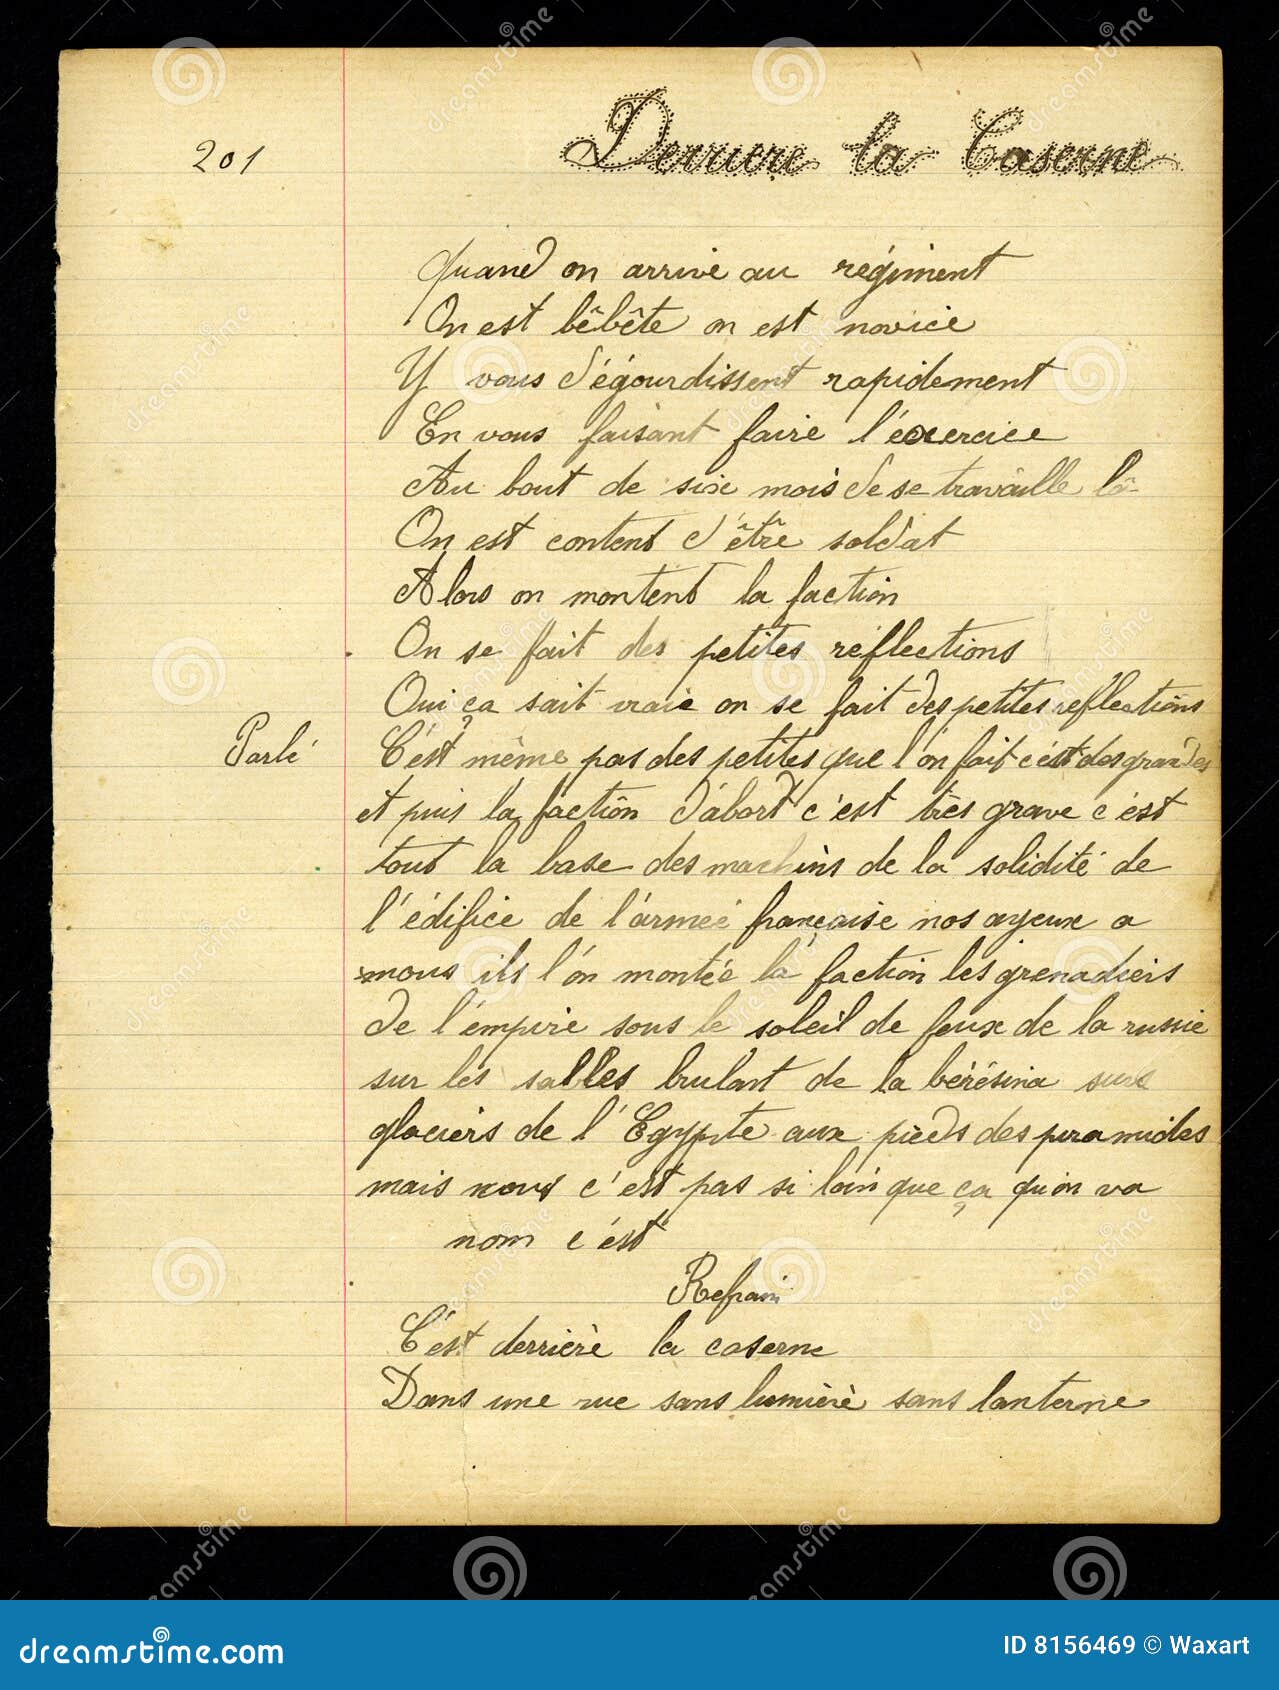 201
Derriere la Caserne
Quand on arrive au régiment
On est bêbête on est novice
Y vous dégourdissent rapidement
En vous faisant faire l'éxercice
Au bout de six mois de se travaille là
On est contend d'être soldat
Alors on montent la faction
On se fait des petites réflections
Oui ça sait vraie on se fait des petites reflections
Parlé C'est même pas des petites que l'on fait c'est des grandes
et puis la faction d'abort c'est très grave c'est
tout la base des machins de la solidité de
l'édifice de l'armeé française nos ayeux a
nous ils l'on montée la faction les grenadiers
de l'empire sous le soleil de feux de la russie
sur les salles brulant de la bérésina sur
glaciers de l'Egypte aux pieds des piramides
mais nous c'est pas si loin que ça qu'on va
nom c'est
Refrain
C'est derrière la caserne
Dans une rue sans lumière sans lanterne
dreamstime.com
ID 8156469 © Waxart